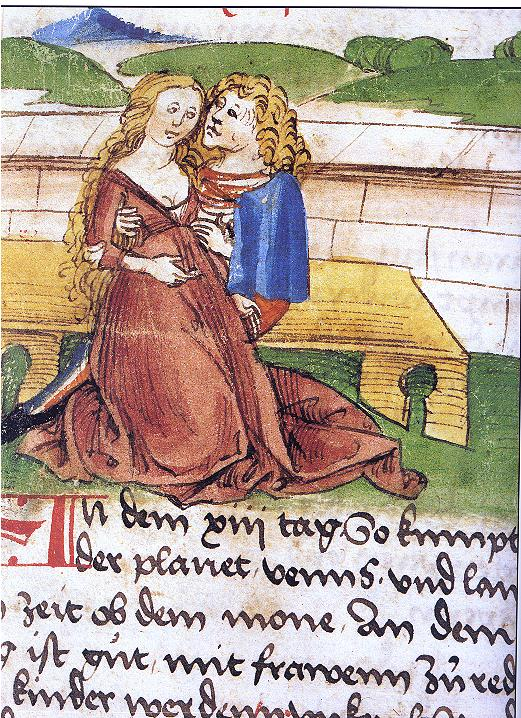 In dem xiii tag So kumpt
der planet venus vnd lan
zeit ob dem mone An dem
ist gůt mit frawenn zů red
kinder werdenn